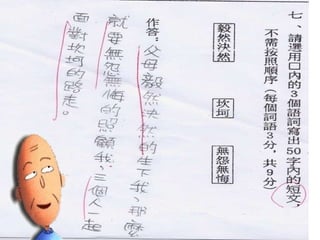 七、請選用口內的3個語詞寫出50字內的短文,
不需按照順序(每個詞語3分,共9分)
毅然決然 坎坷 無怨無悔
作答:父母毅然決然的生下我,那麼
就要無怨無悔的照顧我,三個人一起
面對坎坷的路走。